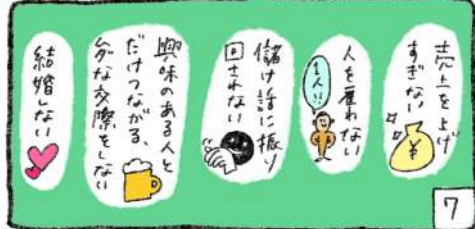 売上を上げ
すぎない
¥
人を雇わない
1人!!
儲け話に振り
回されない
興味のある人と
だけつながる、
ムダな交際をしない
結婚しない
7